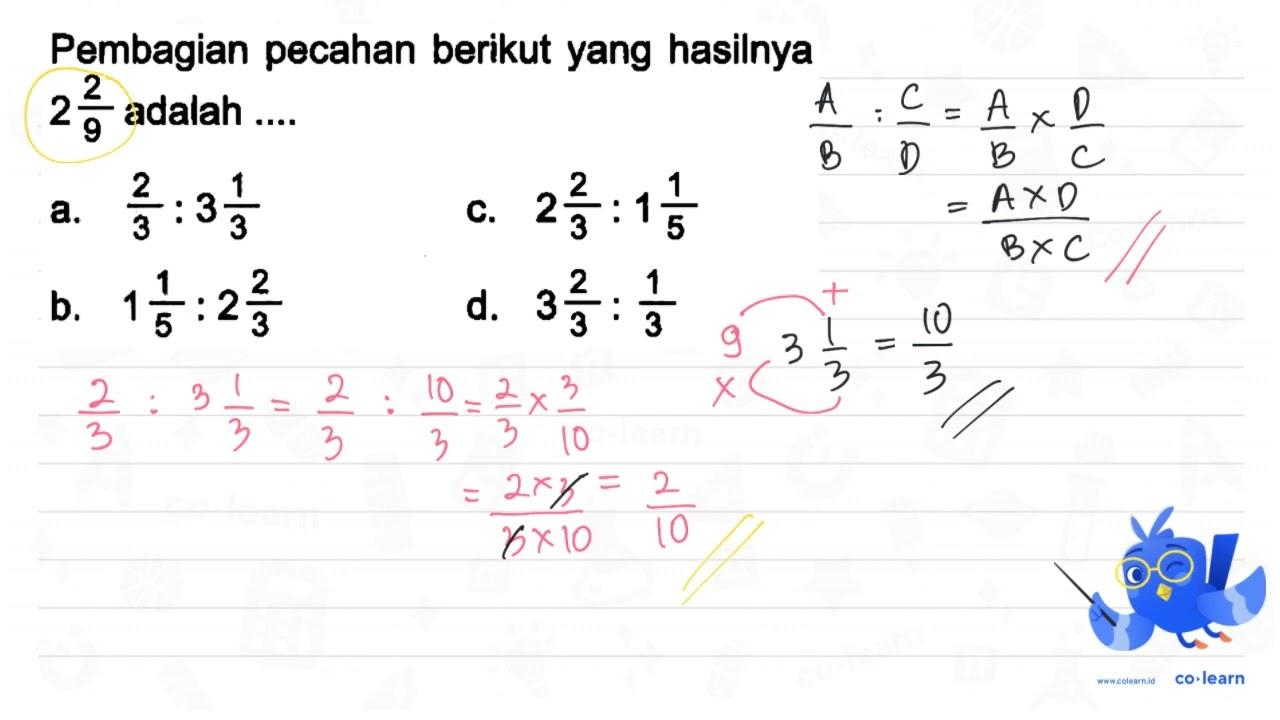 Pembagian pecahan berikut yang hasilnya
2 2/9 adalah ....
a. 2/3 : 3 1/3
c. 2 2/3 : 1 1/5
b. 1 1/5 : 2 2/3
d. 3 2/3 : 1/3
A/B : C/D = A/B × D/C
= A × D / B × C
+
9
×
3 1/3 = 10/3
2/3 : 3 1/3 = 2/3 : 10/3 = 2/3 × 3/10
= 2 × 3 / 3 × 10 = 2/10
www.colearn.id co·learn